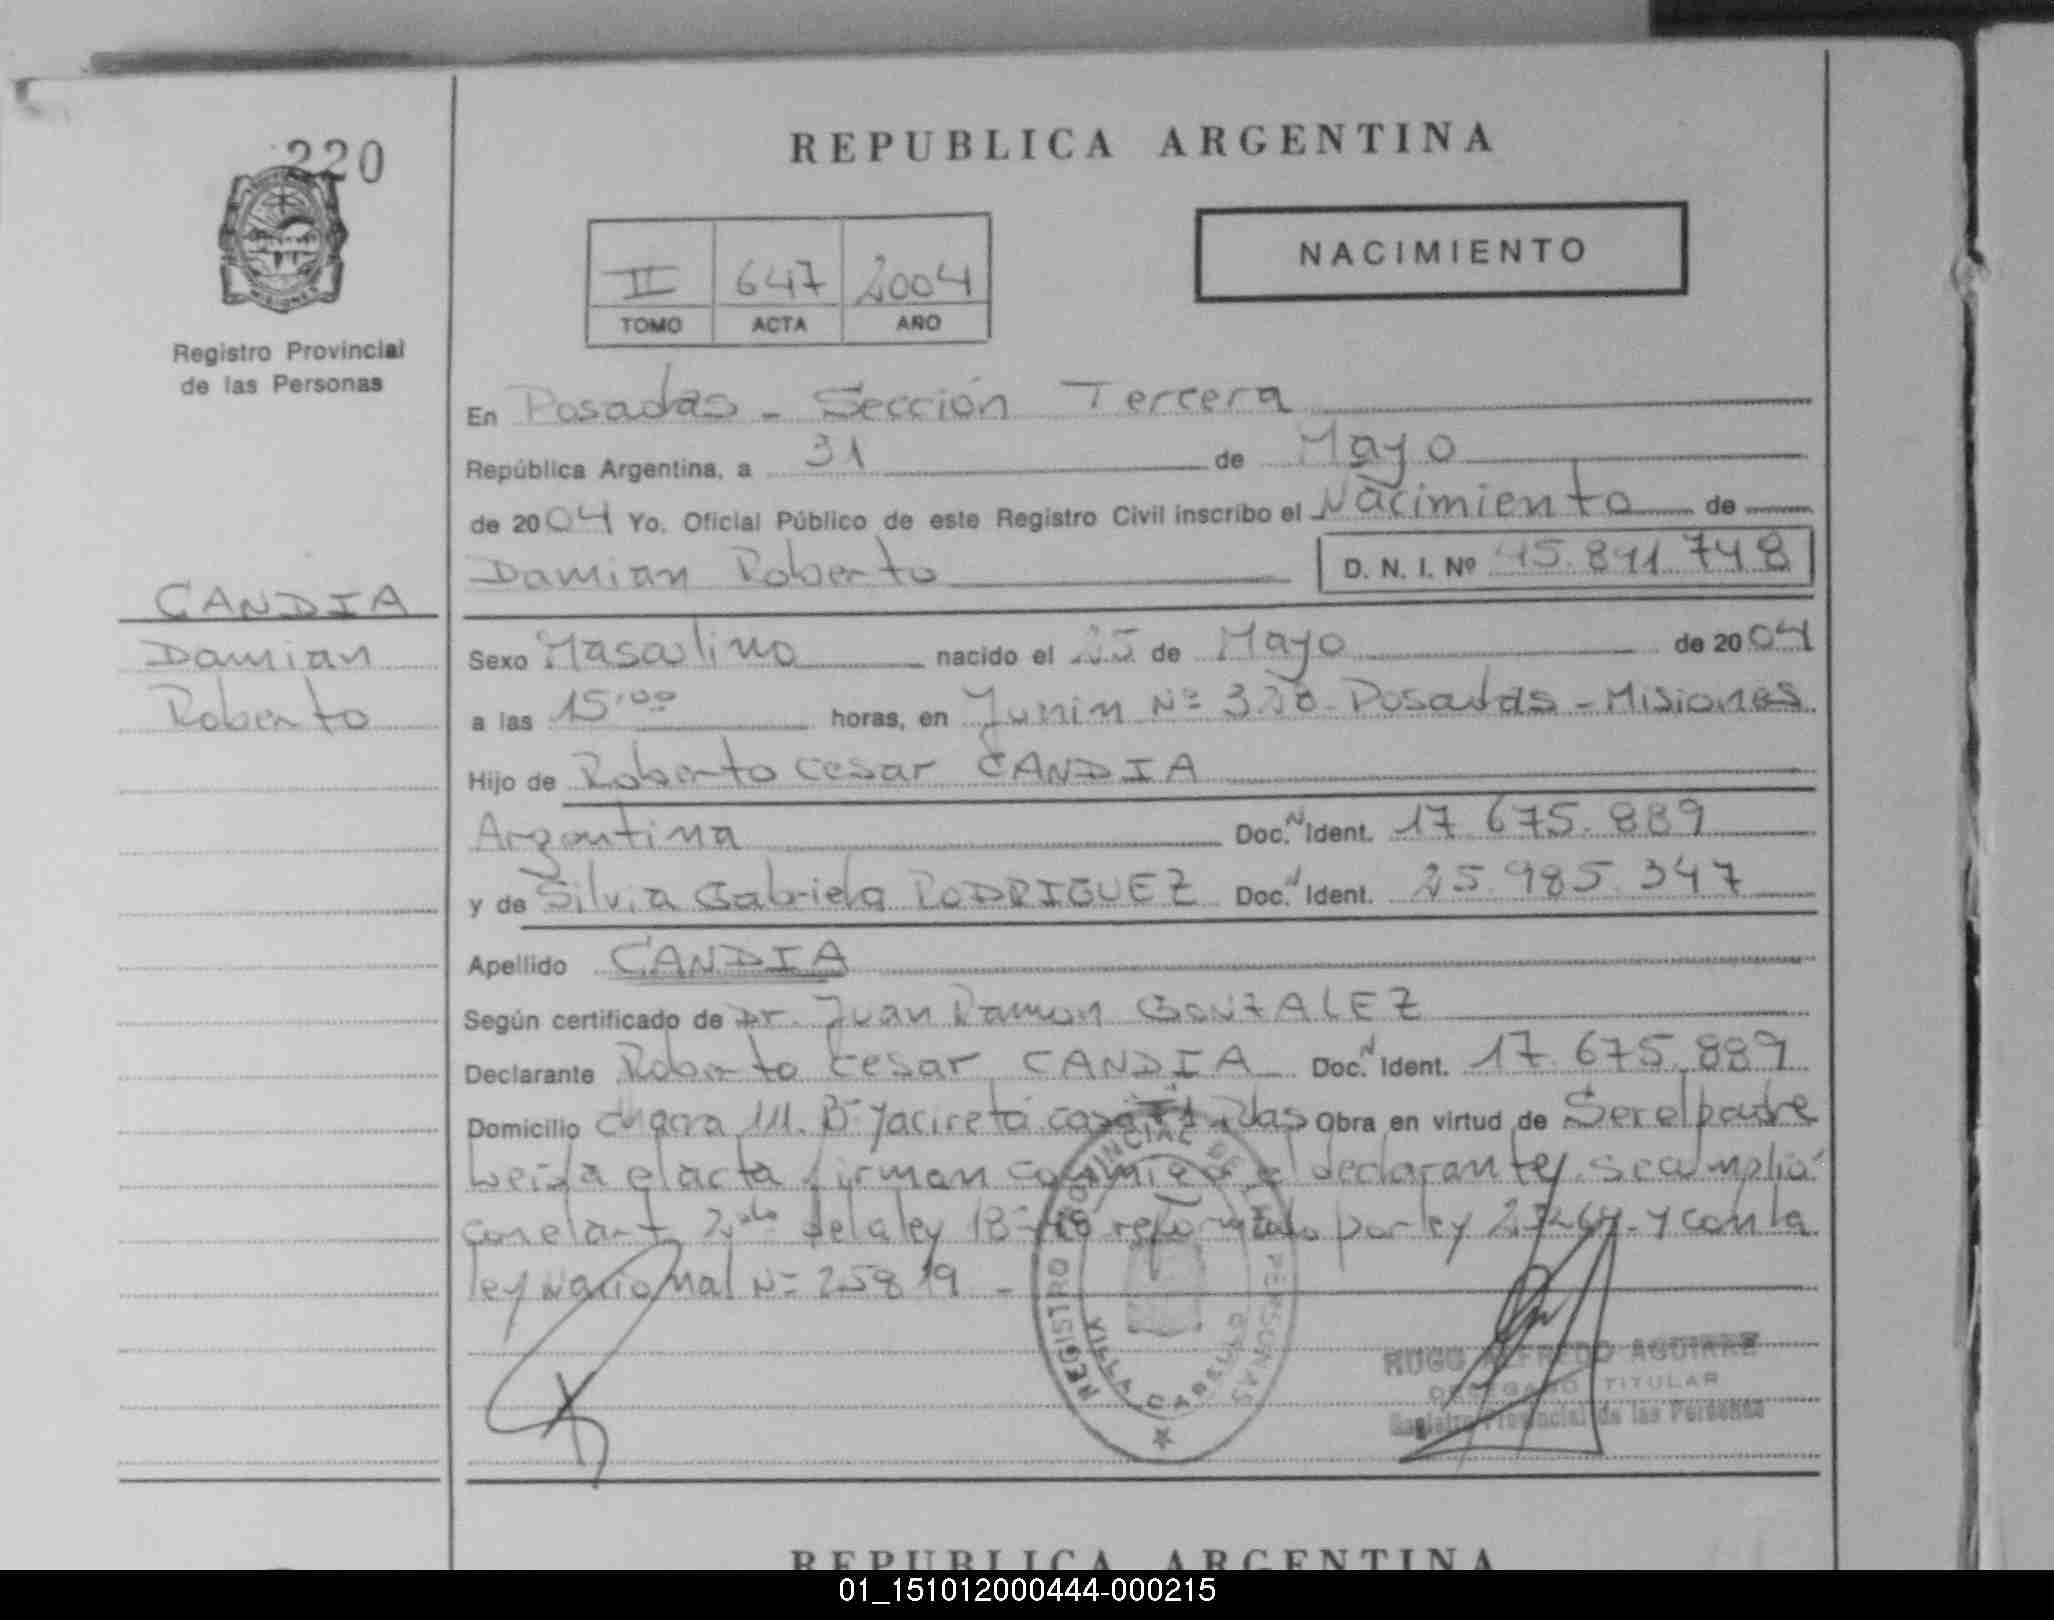 220
REPUBLICA ARGENTINA
NACIMIENTO
II 647 2004
TOMO ACTA AÑO
Registro Provincial
de las Personas
En Posadas - Sección Tercera
República Argentina, a 31 de Mayo
de 2004 Yo. Oficial Público de este Registro Civil inscribo el Nacimiento de
Damian Roberto D. N. I. Nº 45.891.748
CANDIA
Damian
Roberto
Sexo Masculino nacido el 25 de Mayo de 2004
a las 15,00 horas, en Junin Nº Posadas - Misiones
Hijo de Roberto Cesar CANDIA
Argentina Doc. N Ident. 17.675.889
y de Silvia Gabriela RODRIGUEZ Doc. N Ident. 25.985.347
Apellido CANDIA
Según certificado de Dr. Juan Ramon GONZALEZ
Declarante Roberto Cesar CANDIA Doc. N Ident. 17.675.889
Domicilio chacra Bº Yacireta casa Obra en virtud de Ser el padre
Leida el acta firman conmigo el declarante, se cumplio
con el art de la ley reformado por ley y con la
ley Nacional Nº 25819 -
REGISTRO PROVINCIAL DE LAS PERSONAS
VILLA CABELLO
HUGO ALFREDO AGUIRRE
DELEGADO TITULAR
Registro Provincial de las Personas
REPUBLICA ARGENTINA
01_151012000444-000215